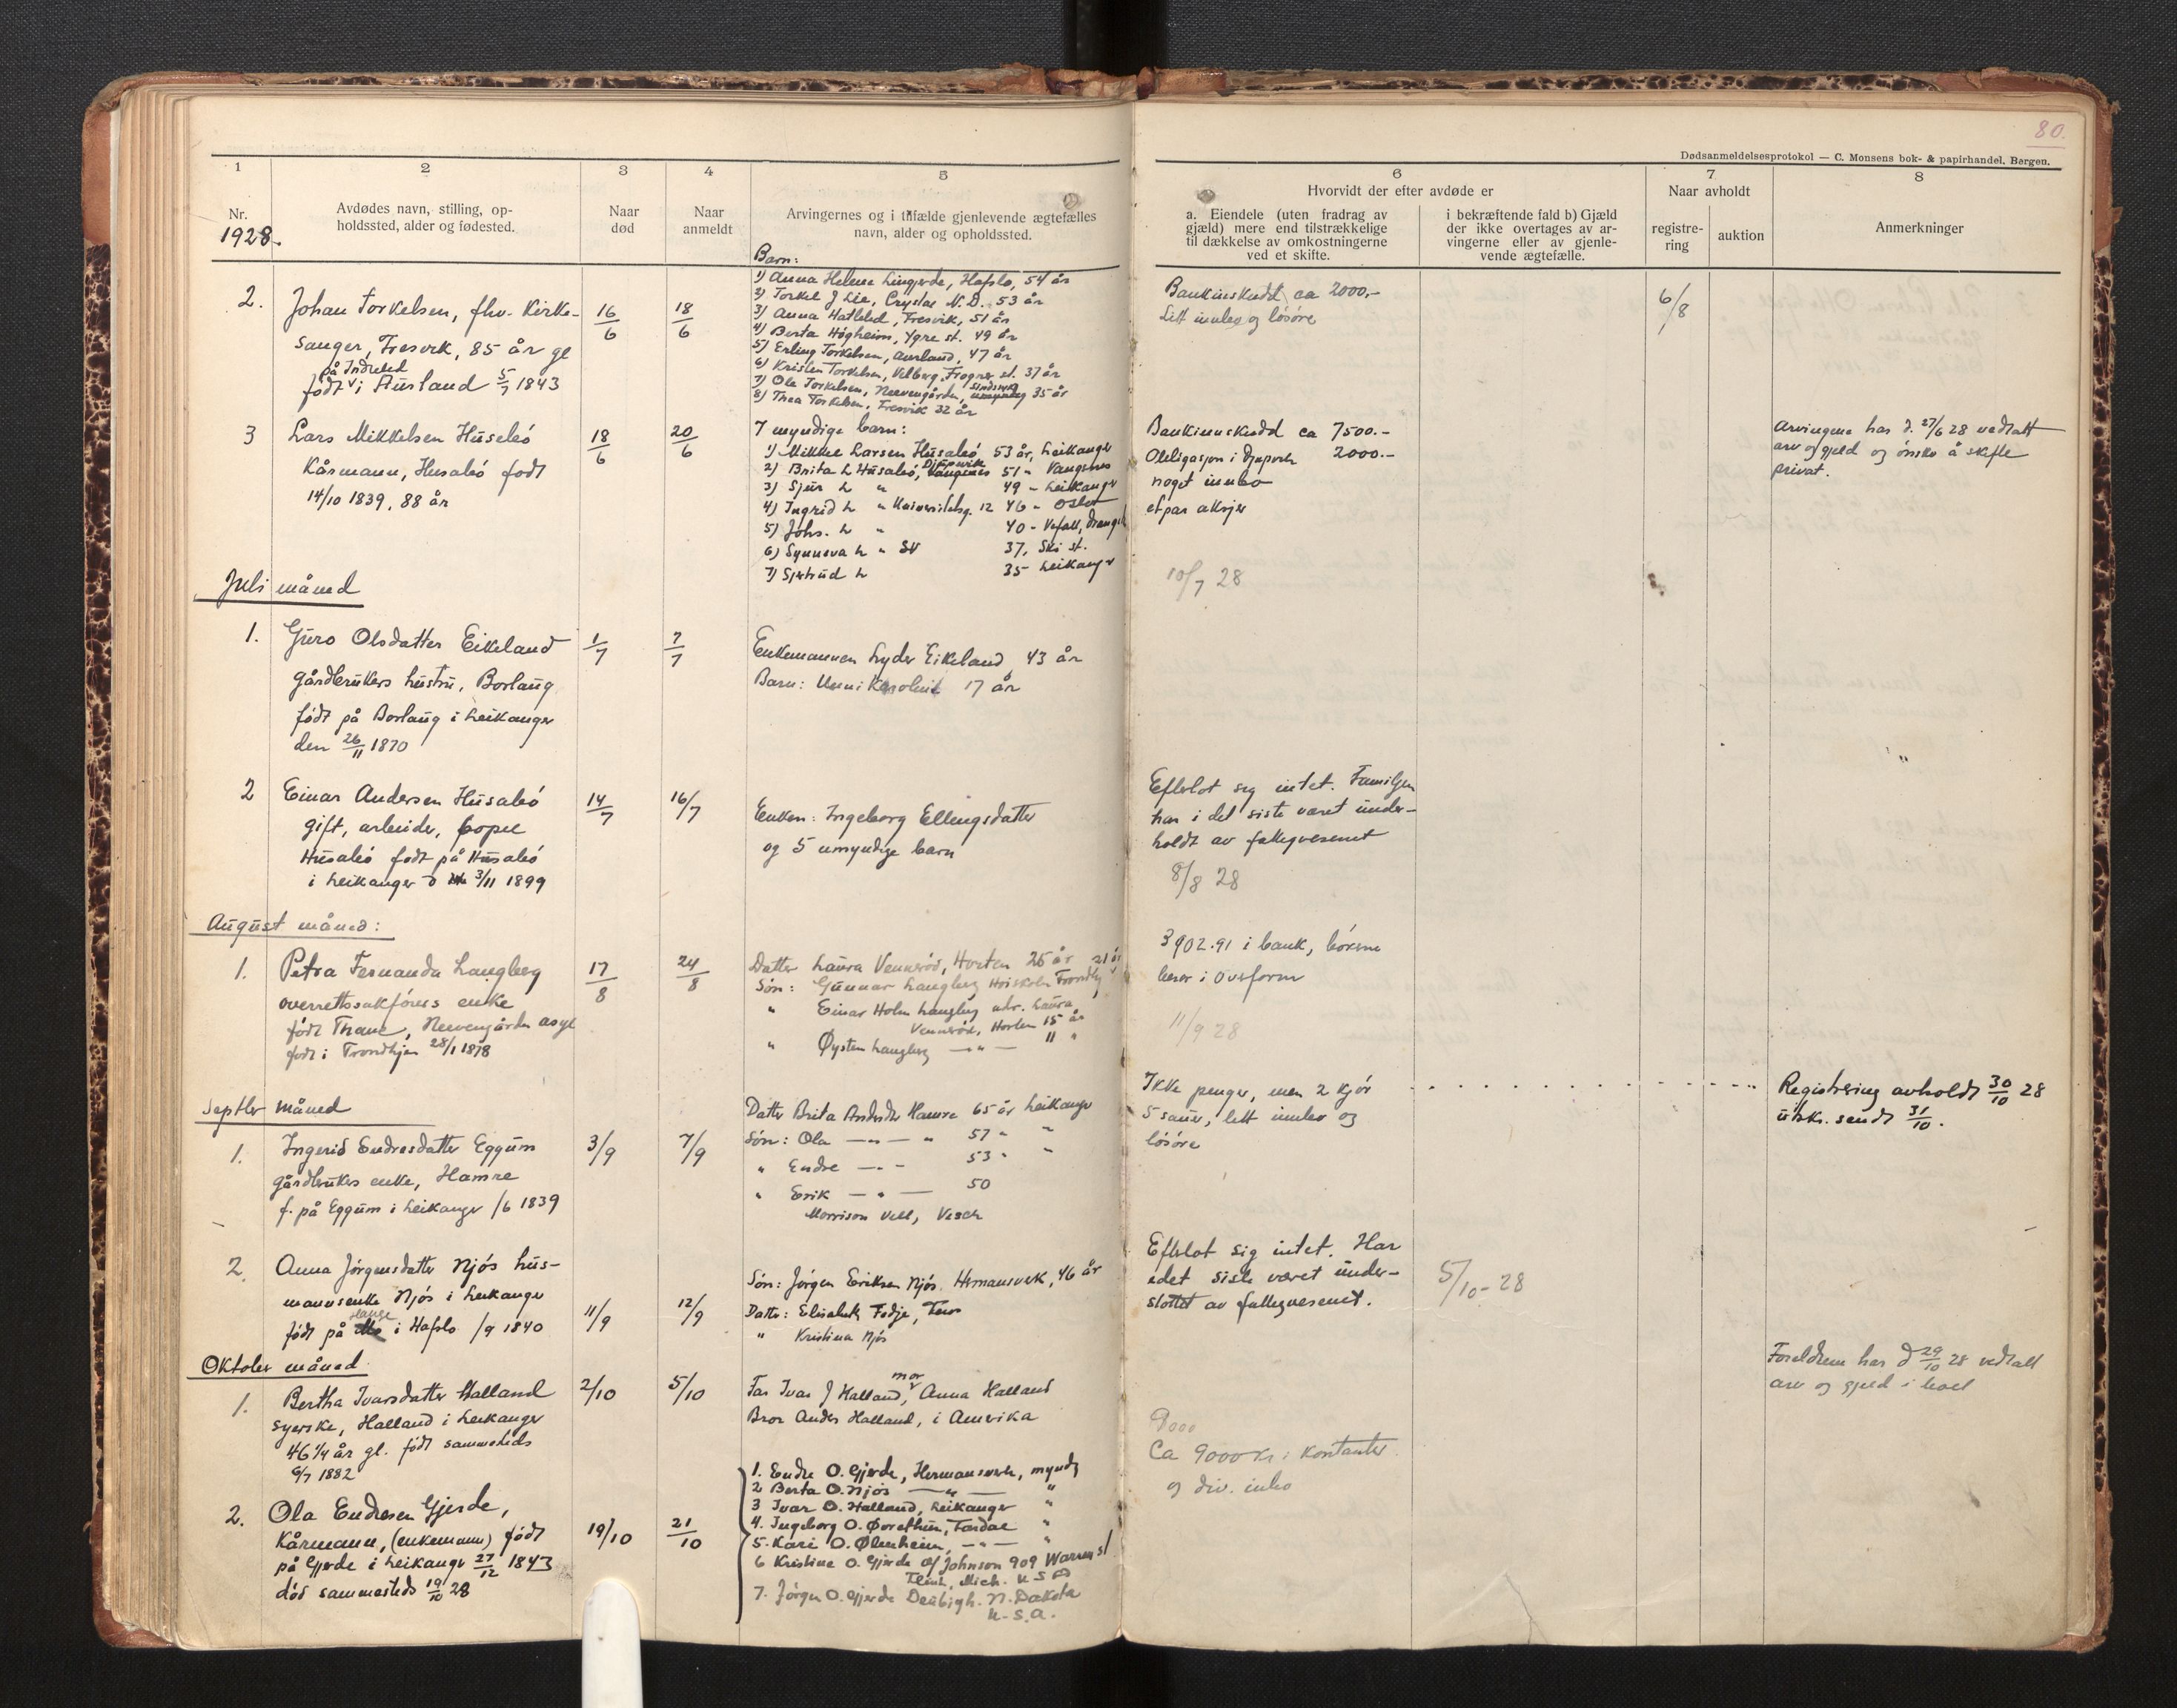 80.
Dødsanmeldelsesprotokol — C. Monsens bok- & papirhandel, Bergen.
1 2 3 4 5 6 7 8
Nr.
1928.
Avdødes navn, stilling, op-
holdssted, alder og fødested.
Naar
død
Naar
anmeldt
Arvingernes og i tilfælde gjenlevende ægtefælles
navn, alder og opholdssted.
Hvorvidt der efter avdøde er
a. Eiendele (uten fradrag av
gjæld) mere end tilstrækkelige
til dækkelse av omkostningerne
ved et skifte.
i bekræftende fald b) Gjæld
der ikke overtages av ar-
vingerne eller av gjenle-
vende ægtefælle.
Naar avholdt
registre-
ring
auktion
Anmerkninger
2.
Johan Torkelsen, fhv. Kirke-
sanger, Fresvik, 85 år gl
på Indrelid
født i Aurland 5/7 1843
16/6
18/6
Barn:
1) Anna Helene Lingjerde, Hafslo, 54 år
2) Torkel J Lie, Crystal N.D. 53 år
3) Anna Hatleled, Fresvik, 51 år
4) Berta Høgheim, Ygre st. 49 år
5) Erling Torkelsen, Aurland, 47 år
6) Kristen Torkelsen, Velberg, Frogner st. 37 år
7) Ole Torkelsen, Neevengården, sindssyk 35 år
8) Thea Torkelsen, Fresvik 32 år
Bankinskudd ca 2000,-
Litt innbo og løsøre
6/8
3
Lars Mikkelsen Husabø
Kårmann, Husabø født
14/10 1839, 88 år
18/6
20/6
7 myndige barn:
1) Mikkel Larsen Husabø 53 år, Leikanger
2) Brita L Husabø, 51 " Vangsnes
3) Sjur L " 49 - Leikanger
4) Ingrid L " Universitetsg. 12 46 - Oslo
5) Johs. L " 40 -
6) Synneva L " 37, Ski st.
7) Gjertrud L 35 Leikanger
Bankinnskudd ca 7500.-
Obligasjon i 2000.-
noget innbo
et par aksjer
Arvingene har d. 27/6 28 vedtatt
arv og gjeld og ønsker å skifte
privat.
10/7 28
Juli måned
1.
Guro Olsdatter Eikeland
gårdbrukers hustru, Borlaug
født på Borlaug i Leikanger
den 26/11 1870
1/7
7/7
Enkemannen Lyder Eikeland 43 år
Barn: Unni Karoline 17 år
2
Einar Andersen Husabø
gift, arbeider, bopæl
Husabø født på Husabø
i Leikanger d 3/11 1899
14/7
16/7
Enken: Ingeborg Ellingsdatter
og 5 umyndige barn
Efterlot sig intet. Familjen
har i det siste været under-
holdt av fattigvesenet
8/8 28
August måned:
1.
Petra Fernanda Langberg
overrettssakførers enke
født Thane, Neevengården asyl
født i Trondhjem 28/1 1878
17/8
24/8
Datter Laura Vennerød, Horten 25 år 21 år
Søn: Gunnar Langberg
" Einar Holm Langberg adr. Laura
Vennerød, Horten 15 år
" Øystein Langberg — " — 11 "
3902.91 i bank, børene
11/9 28
Septbr måned
1.
Ingerid Endresdatter Eggum
gårdbrukers enke, Hamre
f. på Eggum i Leikanger /6 1839
3/9
7/9
Datter Brita Hamre 65 år Leikanger
Søn: Ola — " — " 57 " "
" Endre — " — 53 " "
" Erik — " — 50
Ikke penger, men 2 kjør
5 sauer, litt innbo og
løsøre
Registrering avholdt 30/10 28
utskr. sendt 31/10.
2.
Anna Jørgensdatter Njøs hus-
mannsenke Njøs i Leikanger
født på i Hafslo /9 1840
11/9
12/9
Søn: Jørgen Eriksen Njøs. Hermansverk, 46 år
Datter: Elisabeth Fedje,
" Kristina Njøs
Efterlot sig intet. Har
i det siste været under-
støttet av fattigvesenet.
5/10 - 28
Oktober måned
1.
Bertha Ivarsdatter Halland
syerske, Halland i Leikanger
46 1/4 år gl. født sammesteds
6/7 1882
2/10
5/10
Far Ivar J Halland, mor Anna Halland
Bror Anders Halland, i Amerika
9000
Ca 9000 kr i kontanter
og div. inbo
Foreldrene har d 29/10 28 vedtatt
arv og gjeld i boet
2.
Ola Endresen Gjerde,
Kårmann, (enkemann) født
på Gjerde i Leikanger 27/12 1843
død sammesteds 19/10 28
19/10
21/10
1. Endre O. Gjerde, Hermansverk, myndig
2 Berta O. Njøs — " — "
3 Ivar O. Halland, Leikanger "
4. Ingeborg O. Øvrethun, Fardal "
5. Kari O. Ølmheim, — " — "
6 Kristine O. Gjerde Johnson 909 Warren st
Flint, Mich. U S A
7. Jørgen O. Gjerde Denbigh. N. Dakota
U.S.A.